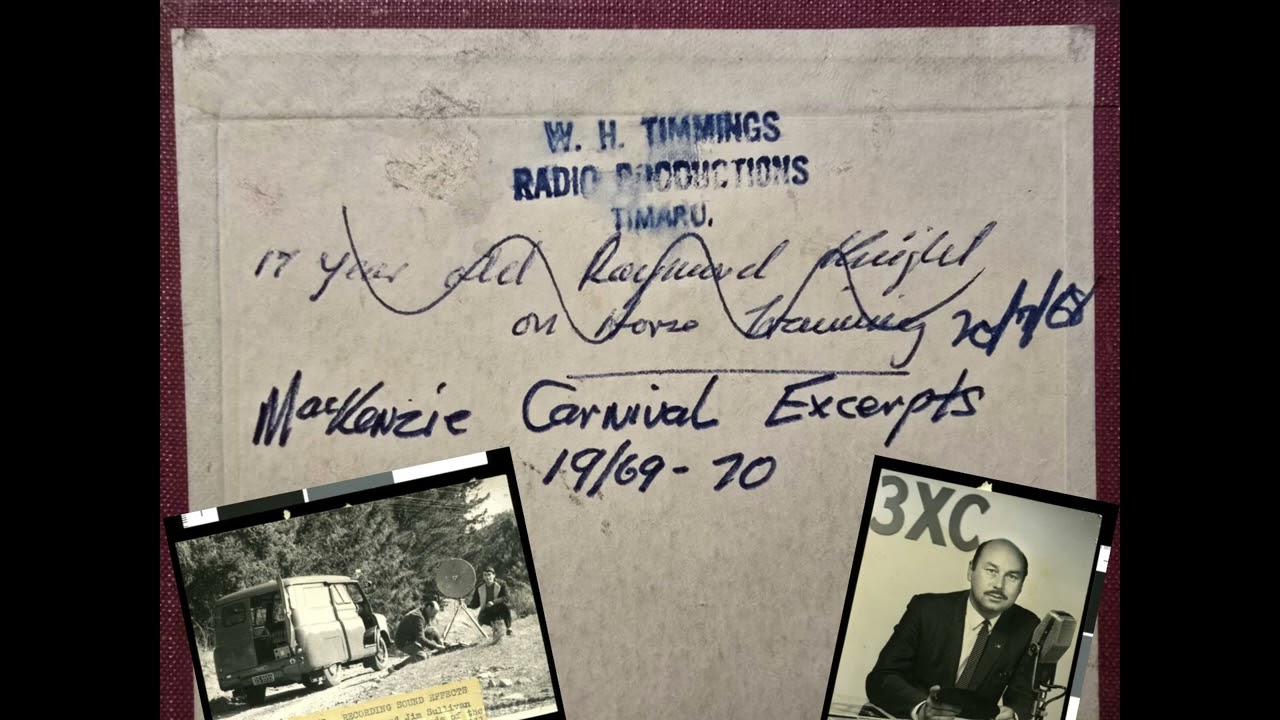 W. H. TIMMINGS
RADIO PRODUCTIONS
TIMARU.
17 Year old Raymond Knight
on Horse Training 20/7/68
MacKenzie Carnival Excerpts
19/69-70
3XC
RECORDING SOUND EFFECTS
Jim Sullivan
of the